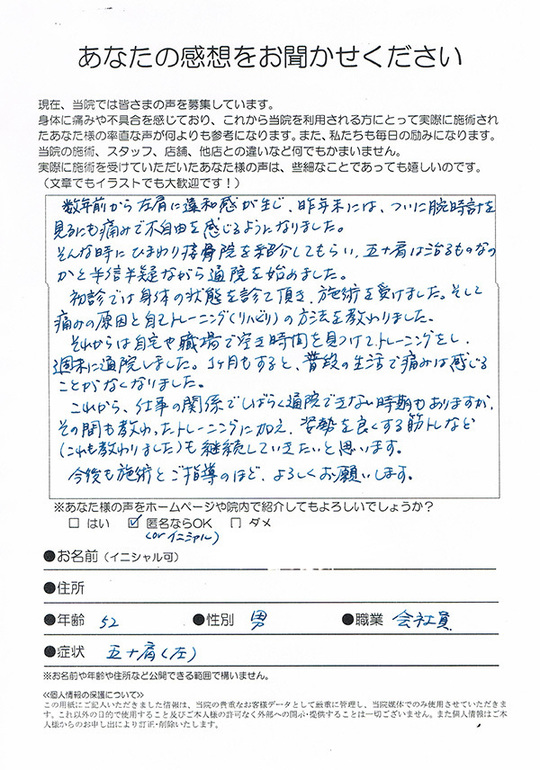 あなたの感想をお聞かせください
現在、当院では皆さまの声を募集しています。
身体に痛みや不具合を感じており、これから当院を利用される方にとって実際に施術され
たあなた様の率直な声が何よりも参考になります。また、私たちも毎日の励みになります。
当院の施術、スタッフ、店舗、他店との違いなど何でもかまいません。
実際に施術を受けていただいたあなた様の声は、些細なことであっても嬉しいのです。
(文章でもイラストでも大歓迎です!)
数年前から左肩に違和感が生じ、昨年末には、ついに腕時計を
見るにも痛みで不自由を感じるようになりました。
そんな時にひまわり接骨院を紹介してもらい、五十肩は治るものなの
かと半信半疑ながら通院を始めました。
初診では身体の状態を診て頂き、施術を受けました。そして
痛みの原因と自主トレーニング(リハビリ)の方法を教わりました。
それからは自宅や職場で空き時間を見つけてトレーニングをし、
週末に通院しました。1ヶ月もすると、普段の生活で痛みは感じる
ことがなくなりました。
これから、仕事の関係でしばらく通院できない時期もありますが、
その間も教わったトレーニングに加え、姿勢を良くする筋トレなど
(これも教わりました)も継続していきたいと思います。
今後も施術とご指導のほど、よろしくお願いします。
※あなた様の声をホームページや院内で紹介してもよろしいでしょうか?
□ はい ☑ 匿名ならOK □ ダメ
(or イニシャル)
●お名前(イニシャル可)
●住所
●年齢 52 ●性別 男 ●職業 会社員
●症状 五十肩(左)
※お名前や年齢や住所など公開できる範囲で構いません。
≪個人情報の保護について≫
この用紙にご記入いただきました情報は、当院の貴重なお客様データとして厳重に管理し、当院媒体でのみ使用させていただきま
す。これ以外の目的で使用すること及びご本人様の許可なく外部への開示・提供することは一切ございません。また個人情報はご本
人様からのお申し出により訂正・削除いたします。